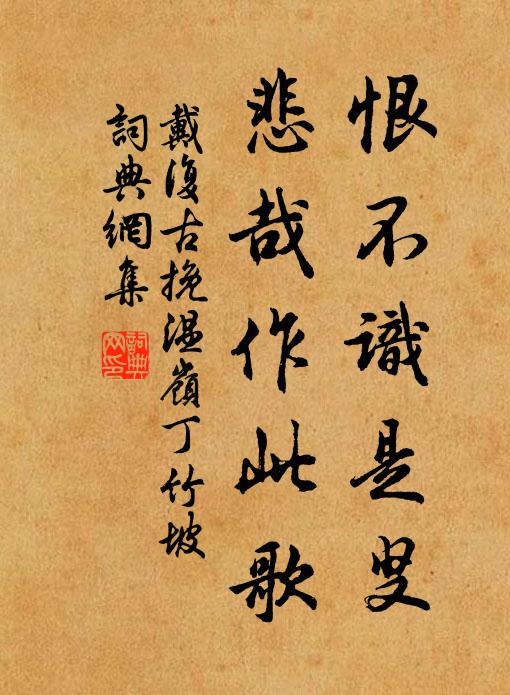 恨不識是叟
悲哉作此歌
戴復古挽溫嶺丁竹坡
詞典網集
詞典網印